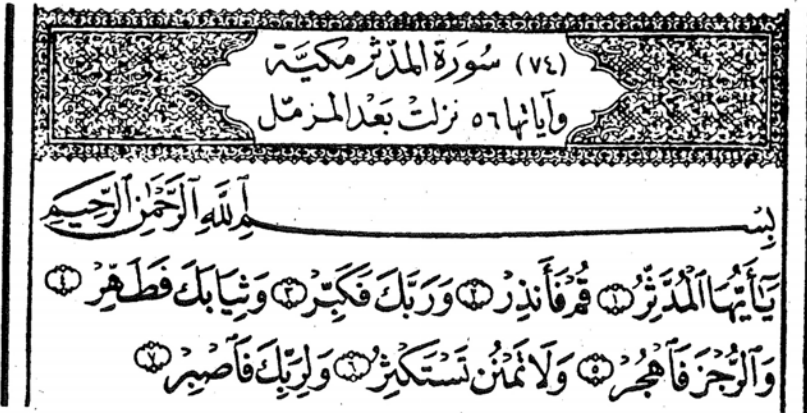 (٧٤) سُورَة المدّثر مكيّة
وآياتها ٥٦ نزلت بَعد المزمّل
بِسْمِ ٱللَّهِ ٱلرَّحْمَٰنِ ٱلرَّحِيمِ
يَٰٓأَيُّهَا ٱلْمُدَّثِّرُ ١ قُمْ فَأَنذِرْ ٢ وَرَبَّكَ فَكَبِّرْ ٣ وَثِيَابَكَ فَطَهِّرْ ٤
وَٱلرُّجْزَ فَٱهْجُرْ ٥ وَلَا تَمْنُن تَسْتَكْثِرُ ٦ وَلِرَبِّكَ فَٱصْبِرْ ٧